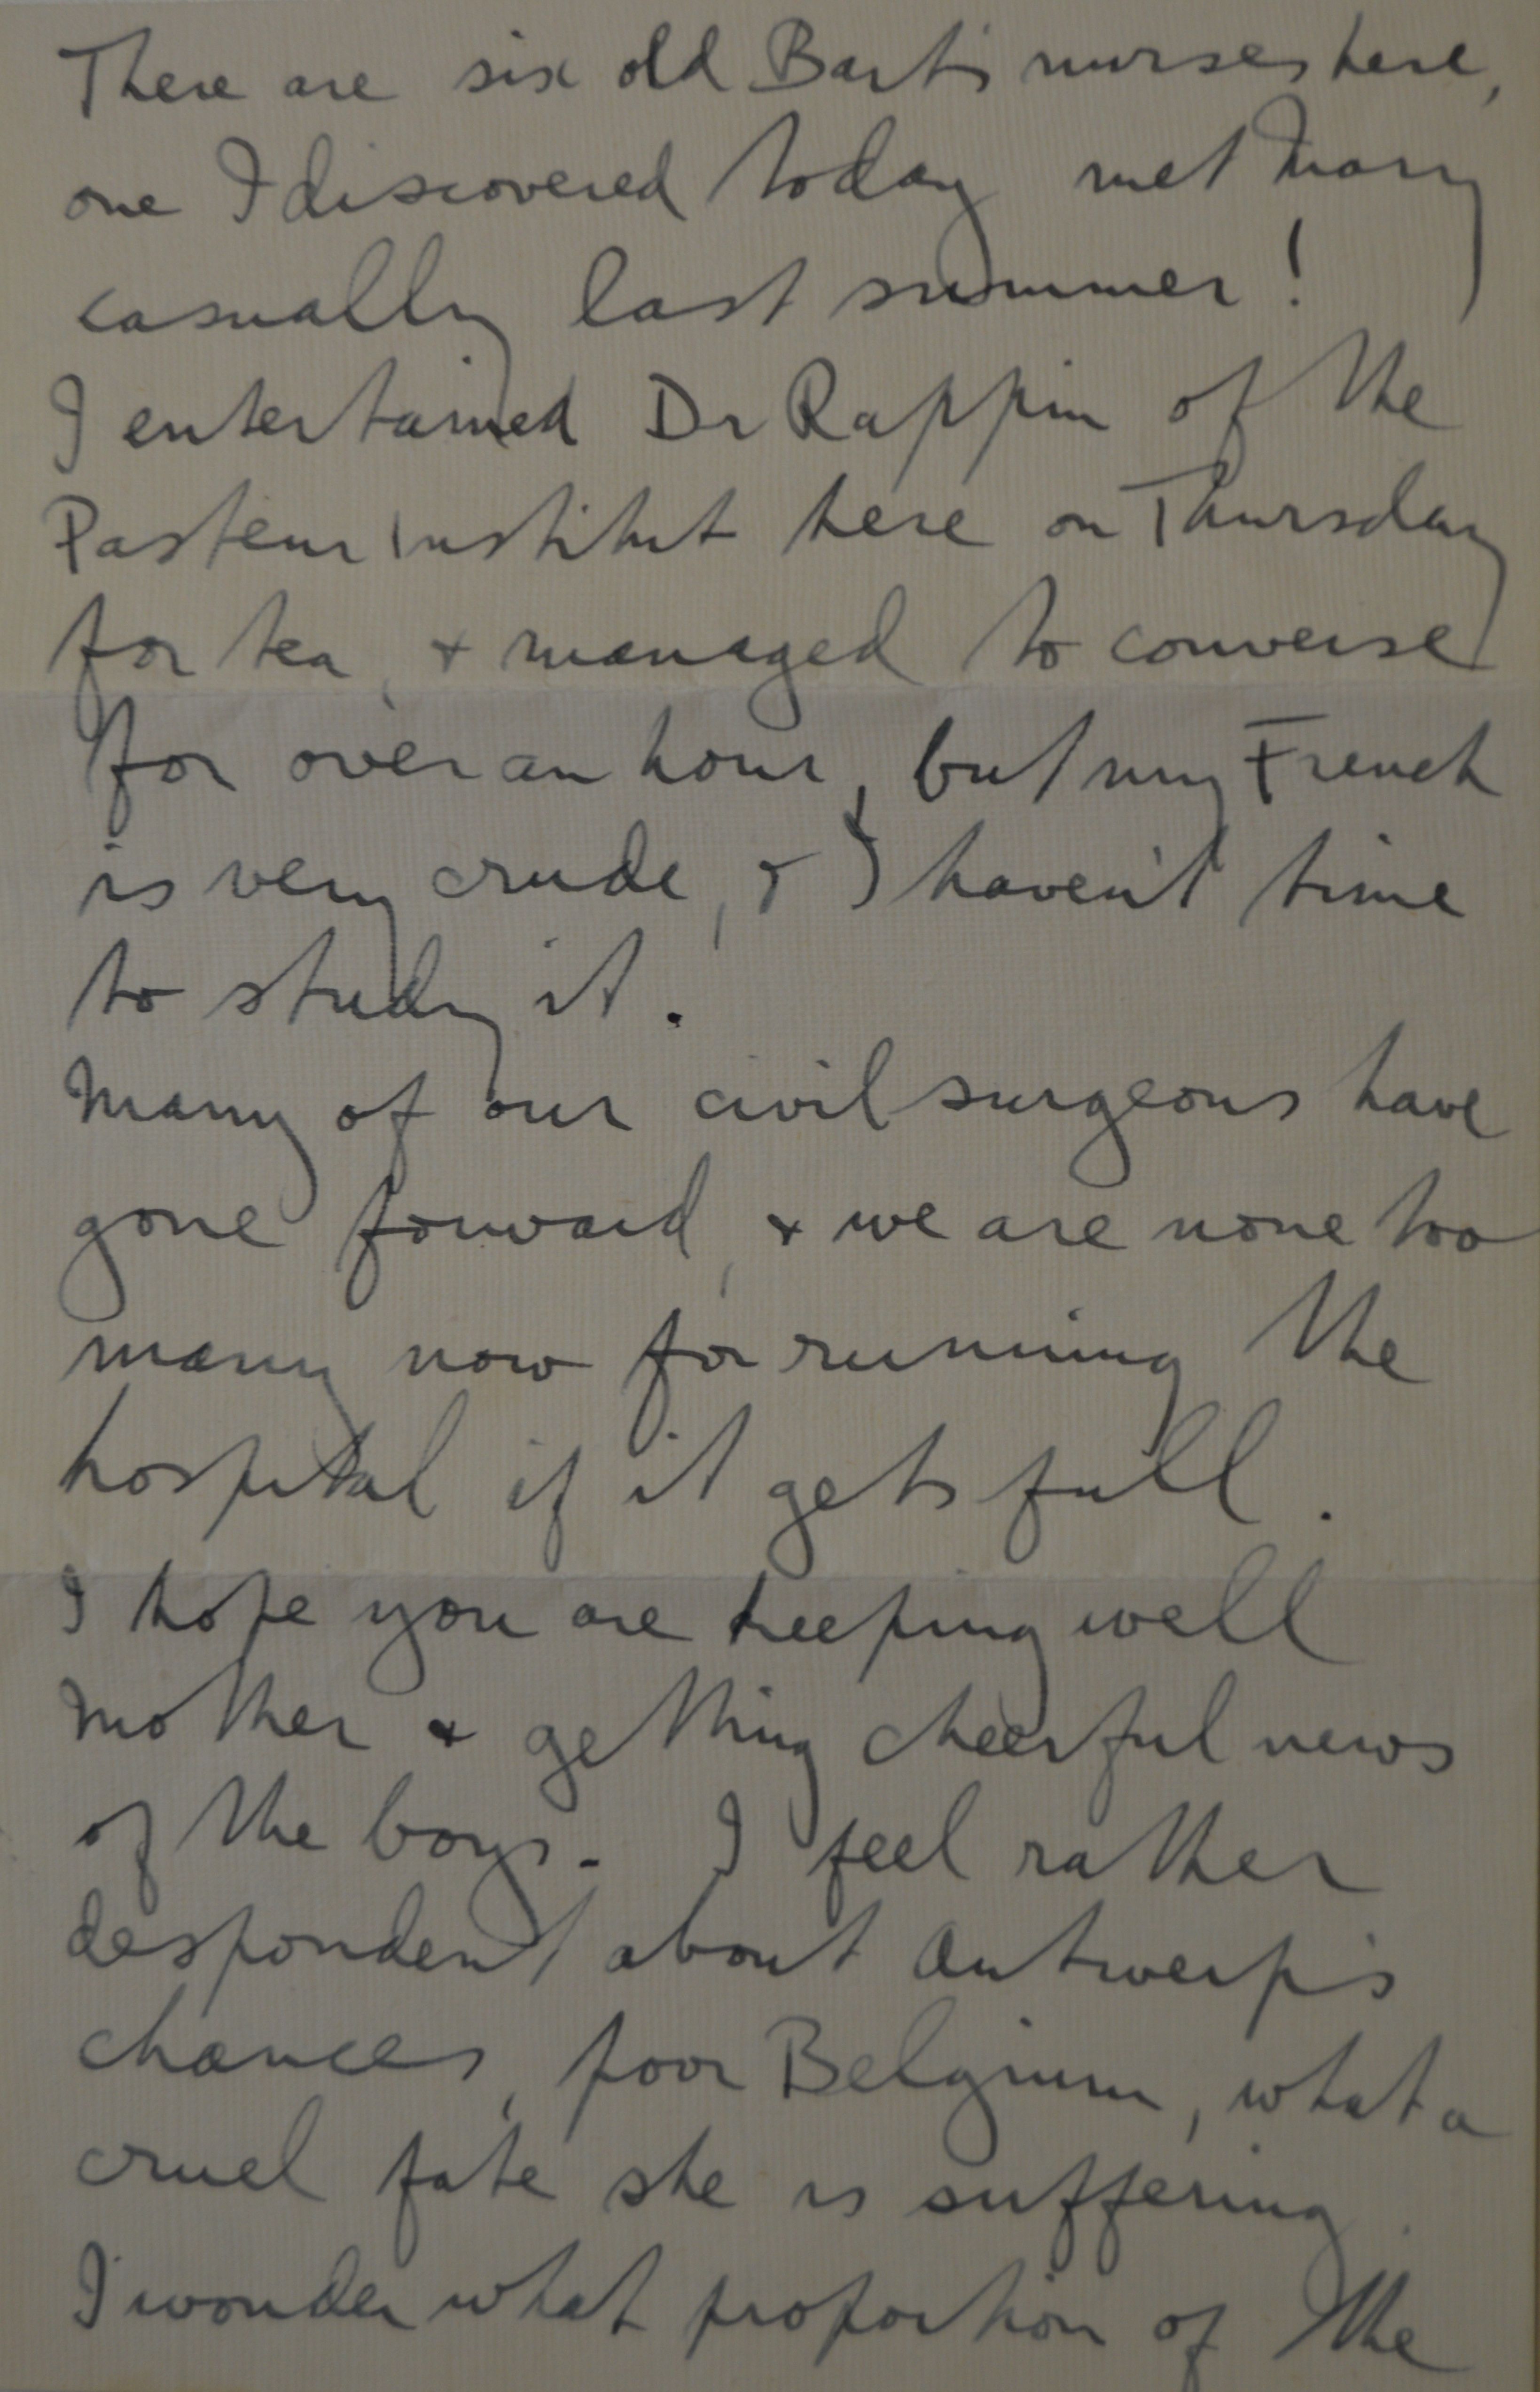 There are six old Bart's nurses here,
one I discovered today met Mary
casually last summer!
I entertained Dr Rappin of the
Pasteur Institut here on Thursday
for tea, & managed to converse
for over an hour, but my French
is very crude, & I haven't time
to study it.
Many of our civil surgeons have
gone forward, & we are none too
many now for running the
hospital if it gets full.
I hope you are keeping well
Mother & getting cheerful news
of the boys. I feel rather
despondent about Antwerp's
chances, poor Belgium, what a
cruel fate she is suffering.
I wonder what proportion of the